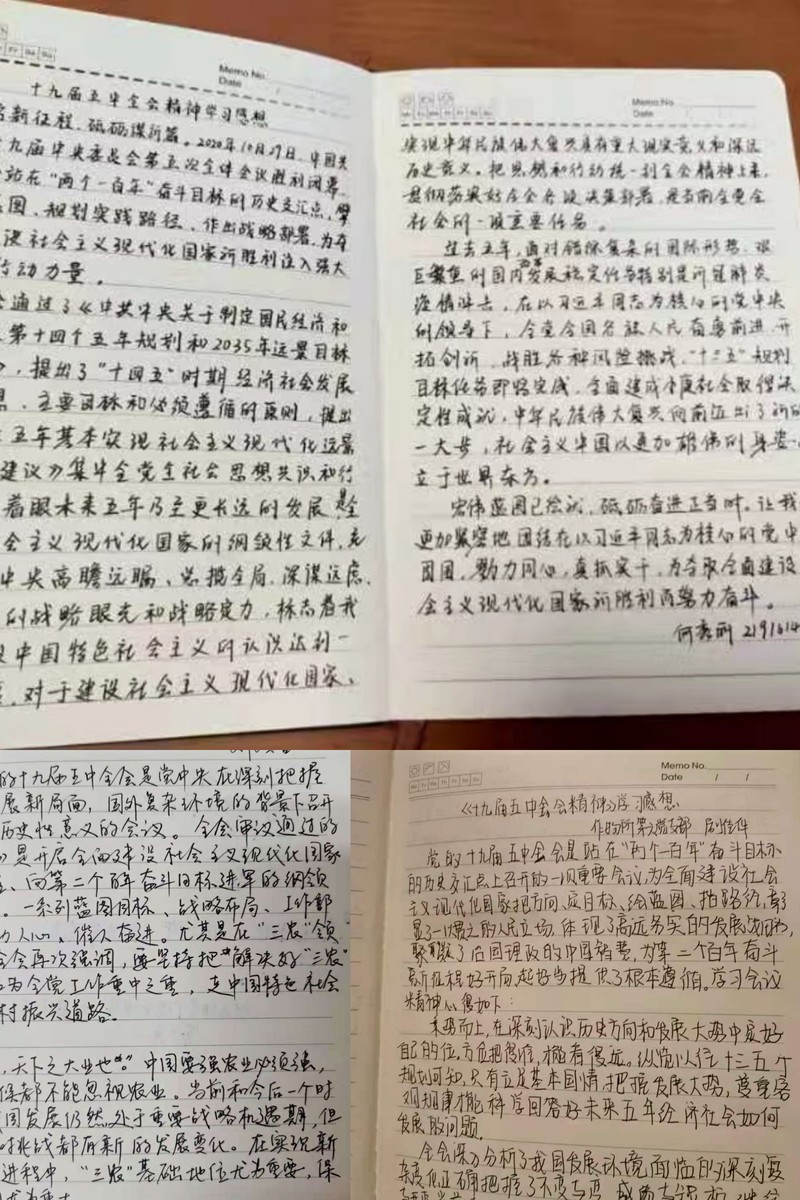 Memo No.
Date
十九届五中全会精神学习感想
新征程,砥砺谱新篇。2020年10月29日,中国共
十九届中央委员会第五次全体会议胜利闭幕。
站在“两个一百年”奋斗目标的历史交汇点,擘
蓝图、规划实践路径、作出战略部署,为夺
社会主义现代化国家新胜利注入强大
动力量。
通过了《中共中央关于制定国民经济和
第十四个五年规划和2035年远景目标
,提出了“十四五”时期经济社会发展
主要目标和必须遵循的原则,提出
五年基本实现社会主义现代化远景
建议》集中全党全社会思想共识和行
着眼未来五年乃至更长远的发展是全
会主义现代化国家的纲领性文件,充
中央高瞻远瞩、总揽全局、深谋远虑、
的战略眼光和战略定力,标志着我
中国特色社会主义的认识达到一
对于建设社会主义现代化国家、
Memo No.
Date
实现中华民族伟大复兴具有重大现实意义和深远
历史意义。把思想和行动统一到全会精神上来,
贯彻落实好全会各项决策部署,是当前全党全
社会的一项重要任务。
过去五年,面对错综复杂的国际形势、艰
巨繁重的国内改革发展稳定任务特别是新冠肺炎
疫情冲击,在以习近平同志为核心的党中央
的领导下,全党全国各族人民奋勇前进、开
拓创新,战胜各种风险挑战,“十三五”规划
目标任务即将完成,全面建成小康社会取得决
定性成就,中华民族伟大复兴向前迈出了新的
一大步,社会主义中国以更加雄伟的身姿
立于世界东方。
宏伟蓝图已绘就,砥砺奋进正当时。让我
更加紧密地团结在以习近平同志为核心的党中
周围,勠力同心,真抓实干,为夺取全面建设
会主义现代化国家新胜利而努力奋斗。
2191614
的十九届五中全会是党中央在深刻把握
展新局面,国外复杂环境的背景下召开
历史性意义的会议。全会审议通过的
是开启全面建设社会主义现代化国家
向第二个百年奋斗目标进军的纲领
一系列蓝图目标、战略布局、工作部
人心、催人奋进。尤其是在“三农”领
会再次强调,要坚持把“解决好“三农”
为全党工作重中之重,走中国特色社会
村振兴道路。
,天下之大业也。”中国要强农业必须强,
候都不能忽视农业。当前和今后一个时
国发展仍然处于重要战略机遇期,但
挑战都有新的发展变化。在实现新
进程中,“三农”基础地位尤为重要,保
Memo No.
Date / /
《十九届五中全会精神》学习感想
作物所第六党支部
党的十九届五中全会是站在“两个一百年”奋斗目标
的历史交汇点上召开的一次重要会议,为全面建设社会
主义现代化国家把方向、定目标、绘蓝图、指路径,彰
显了一以贯之的人民立场,体现了高远务实的发展战略,
聚焦了后国理政的中国智慧,为第二个百年奋斗
新征程好开局、起好步提供了根本遵循。学习会议
精神心得如下:
未势而上,在深刻认识历史方向和发展大势中定好
自己的位,方位把得准,才能看得远。纵览以往十三五个
规划可知,只有立足基本国情,把握发展大势,尊重客
观规律才能科学回答好未来五年经济社会如何
发展的问题。
全会深入分析了我国发展环境面临的深刻复